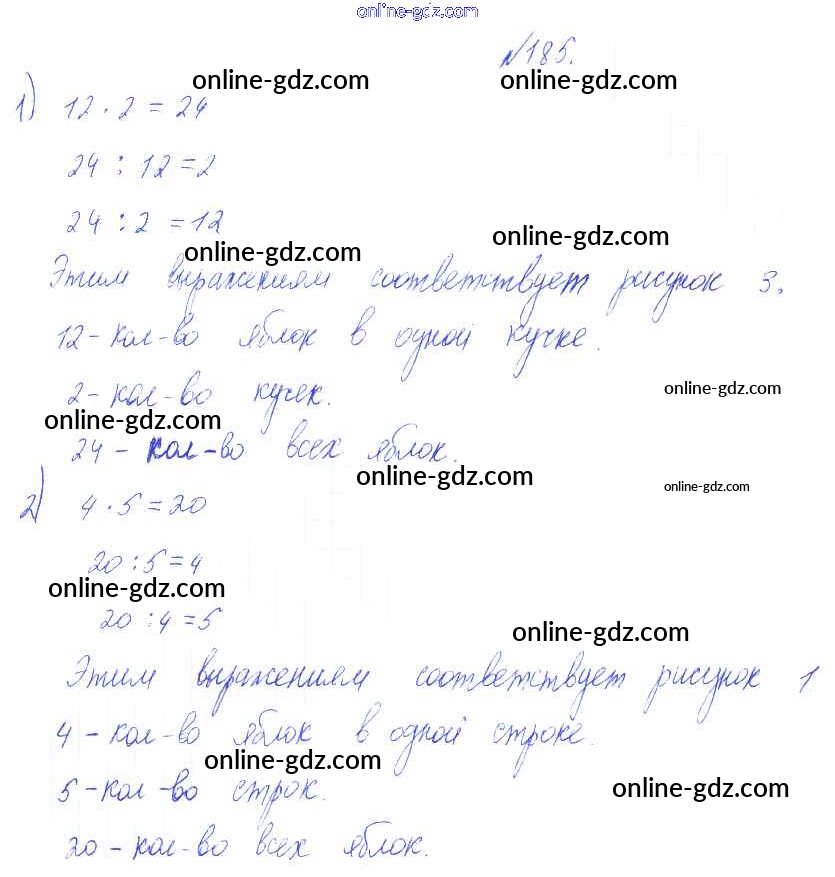 online-gdz.com
№185.
online-gdz.com online-gdz.com
1) 12 · 2 = 24
24 : 12 = 2
24 : 2 = 12
online-gdz.com online-gdz.com
Этим выражениям соответствует рисунок 3.
12 - кол-во яблок в одной кучке.
online-gdz.com
2 - кол-во кучек.
online-gdz.com
24 - кол-во всех яблок.
online-gdz.com online-gdz.com
2) 4 · 5 = 20
20 : 5 = 4
online-gdz.com
20 : 4 = 5
online-gdz.com
Этим выражениям соответствует рисунок 1
4 - кол-во яблок в одной строке.
online-gdz.com
5 - кол-во строк.
online-gdz.com
20 - кол-во всех яблок.